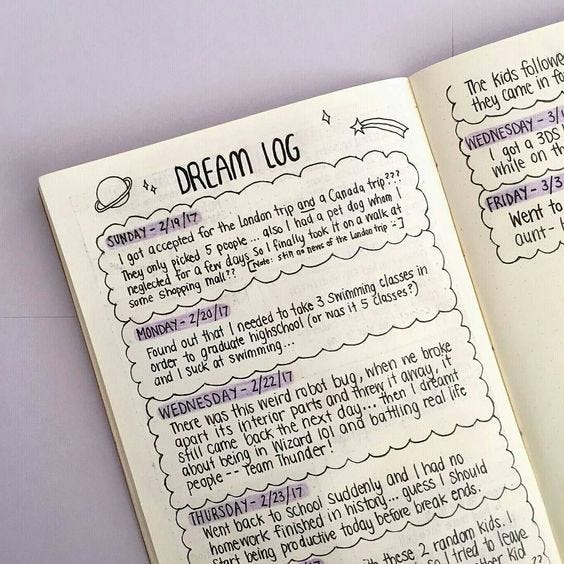 DREAM LOG
SUNDAY - 2/19/17
I got accepted for the London trip and a Canada trip???
They only picked 5 people... also I had a pet dog whom I
neglected for a few days so I finally took it on a walk at
some shopping mall?? [Note: still no news of the London trip :-]
MONDAY - 2/20/17
Found out that I needed to take 3 swimming classes in
order to graduate highschool (or was it 5 classes?)
and I suck at swimming...
WEDNESDAY - 2/22/17
There was this weird robot bug, when we broke
apart its interior parts and threw it away, it
still came back the next day... then I dreamt
about being in Wizard 101 and battling real life
people -- Team Thunder!
THURSDAY - 2/23/17
Went back to school suddenly and I had no
homework finished in history... guess I should
start being productive today before break ends.
with these 2 random kids. I
so I tried to leave
other kid
The kids followe
they came in fo
WEDNESDAY - 3/
I got a 3DS
while on th
FRIDAY - 3/3
Went to
aunt-